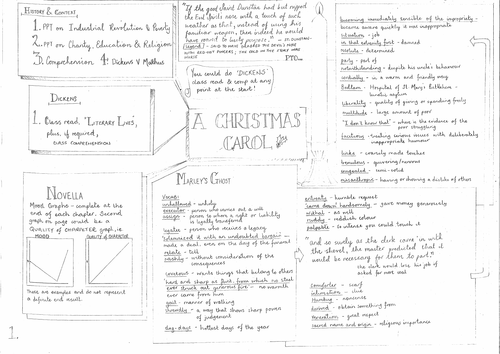 HISTORY & CONTEXT
1. PPT on Industrial Revolution & Poverty
2. PPT on Charity, Education & Religion
3. Comprehension 4. Dickens v Malthus
DICKENS
1. Class read, 'Literary Lives',
plus, if required,
CLASS COMPREHENSIONS
NOVELLA
Mood Graphs - complete at the
end of each chapter. Second
graph on page could be a
QUALITY OF CHARACTER graph, ie.
MOOD
QUALITY OF CHARACTER
These are examples and do not represent
a definite result.
1.
"If the good Saint Dunstan had but nipped
the Evil Spirit's nose with a touch of such
weather as that, instead of using his
familiar weapon, then indeed he would
have roared to lusty purpose."
PTO...
You could do 'DICKENS'
class read & comp at any
point at the start!
A CHRISTMAS
CAROL
MARLEY'S GHOST
unhallowed - unholy
executor - person who carries out a will
assign - person to whom a right or liability
is legally transferred
legatee - person who receives a legacy
solemnised it with an undoubted bargain -
made a deal, even on the day of the funeral
relate - tell
rashly - without consideration of the
consequences
covetous - wants things that belong to others
hard and sharp as flint, from which no steel
ever struck out generous fire - no warmth
ever came from him
gait - manner of walking
shrewdly - a way that shows sharp powers
of judgement
dog-days - hottest days of the year
entreaty - humble request
came down handsomely - gave money generously
wistful
ruddy - reddish colour
palpable - as though you could touch it
"and so surely as the clerk came in with
the shovel, the master predicted that it
would be necessary for them to part."
the clerk would lose his job if
asked for more coal
comforter - scarf
Humbug - nonsense
veneration - great respect
sacred name and origin - religious importance
becoming immediately sensible of the impropriety -
became aware quickly it was inappropriate
situation - job
resolute - determined
party - part of
notwithstanding - despite
cordially - in a warm and friendly way
Bedlam - Hospital of St. Mary's Bethlehem -
lunatic asylum
liberality - quality of giving or spending freely
multitude - large amount of poor
"I don't know that" - where is the evidence of the
poor struggling
facetious - treating serious issues with deliberately
inappropriate humour
tremulous - quivering/nervous
misanthropic - having or showing a dislike of others